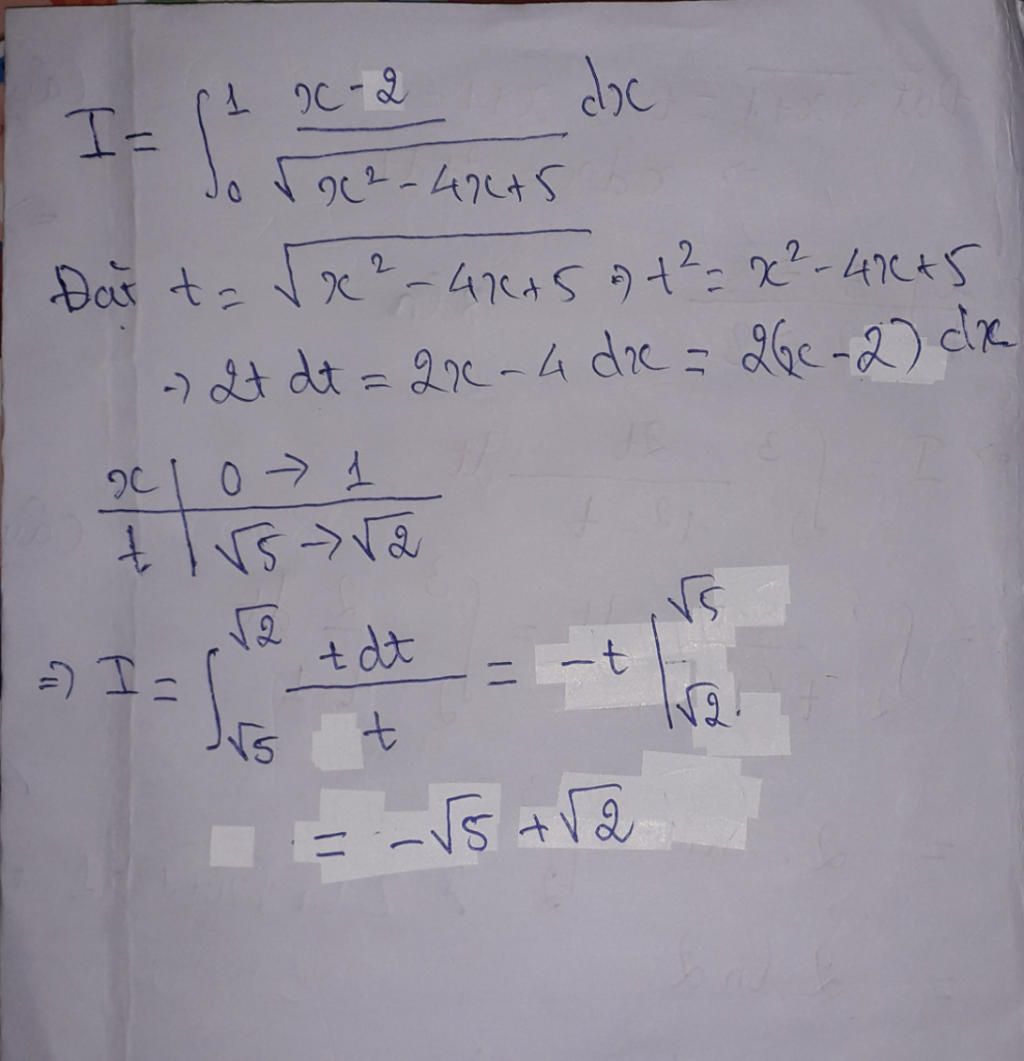 I = ∫₀¹ (x-2)/√(x²-4x+5) dx
Đặt t = √(x²-4x+5) ⇒ t² = x²-4x+5
→ 2t dt = 2x-4 dx = 2(x-2) dx
x | 0 → 1
t | √5 → √2
⇒ I = ∫_{√5}^{√2} (t dt)/t = -t |_{√2}^{√5}
= -√5 + √2